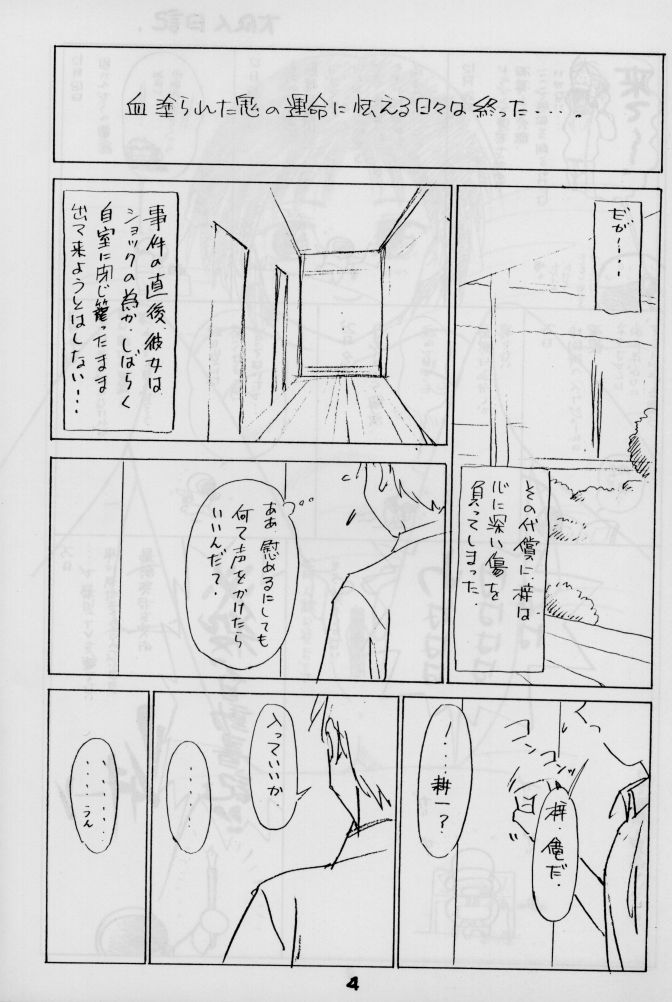 血塗られた鬼の運命に怯える日々は終った・・・。
だが・・・
その代償に、梓は
心に深い傷を
負ってしまった。
事件の直後、彼女は
ショックの為か、しばらく
自室に閉じ籠ったまま
出て来ようとはしない・・・
ああ 慰めるにしても
何て声をかけたら
いいんだて・
コンコンッ
梓、俺だ。
・・・・耕一?
入っていいか
・・・・・
・・・・・
・・・・うん
4